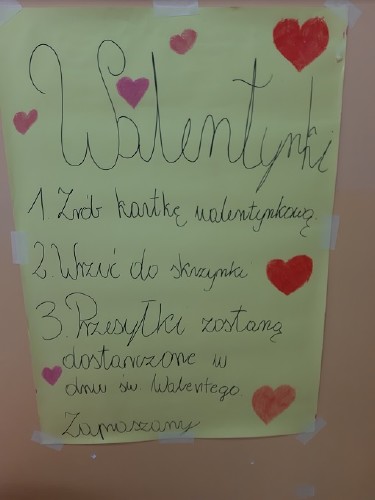 Walentynki
1. Zrób kartkę walentynkową
2. Wrzuć do skrzynki
3. Przesyłki zostaną
dostarczone w
dniu św. Walentego.
Zapraszamy